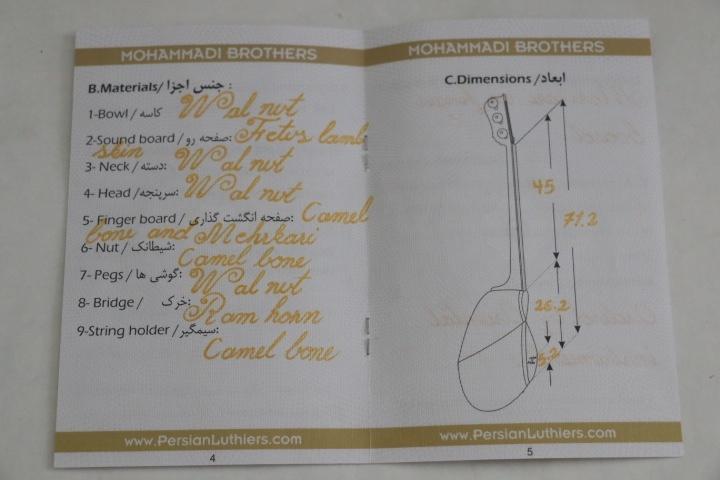 MOHAMMADI BROTHERS
B.Materials/ جنس اجزا :
1-Bowl / کاسه Walnut
2-Sound board / صفحه رو: Fetus lamb
skin
3- Neck / دسته: Walnut
4- Head / سرپنجه: Walnut
5- Finger board / صفحه انگشت گذاری: Camel
bone and Mehrkari
6- Nut / شیطانک:
Camel bone
7- Pegs / گوشی ها: Walnut
8- Bridge / خرک: Ram horn
9-String holder / سیمگیر:
Camel bone
www.PersianLuthiers.com
4
MOHAMMADI BROTHERS
C.Dimensions / ابعاد
45
71.2
26.2
5.2
www.PersianLuthiers.com
5